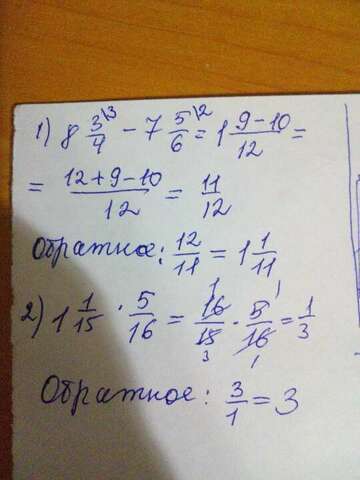 1) 8 3/4 \3 - 7 5/6 \2 = 1 9-10/12 =
= 12+9-10/12 = 11/12
Обратное: 12/11 = 1 1/11
2) 1 1/15 · 5/16 = 16/15 · 5/16 = 1/3
1 1
3 1
Обратное: 3/1 = 3